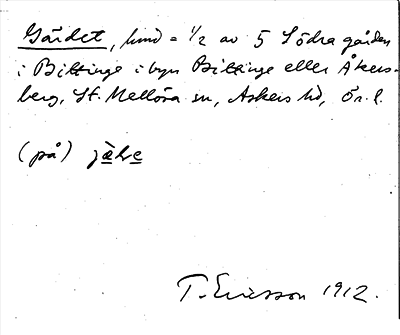 Gärdet, hmd = 1/2 av 5 Södra gården
i Bittinge i byn Bittinge eller Åkers-
berg, St. Mellösa sn, Askers hd, Ör. l.
(på)
T. Ericsson 1912.